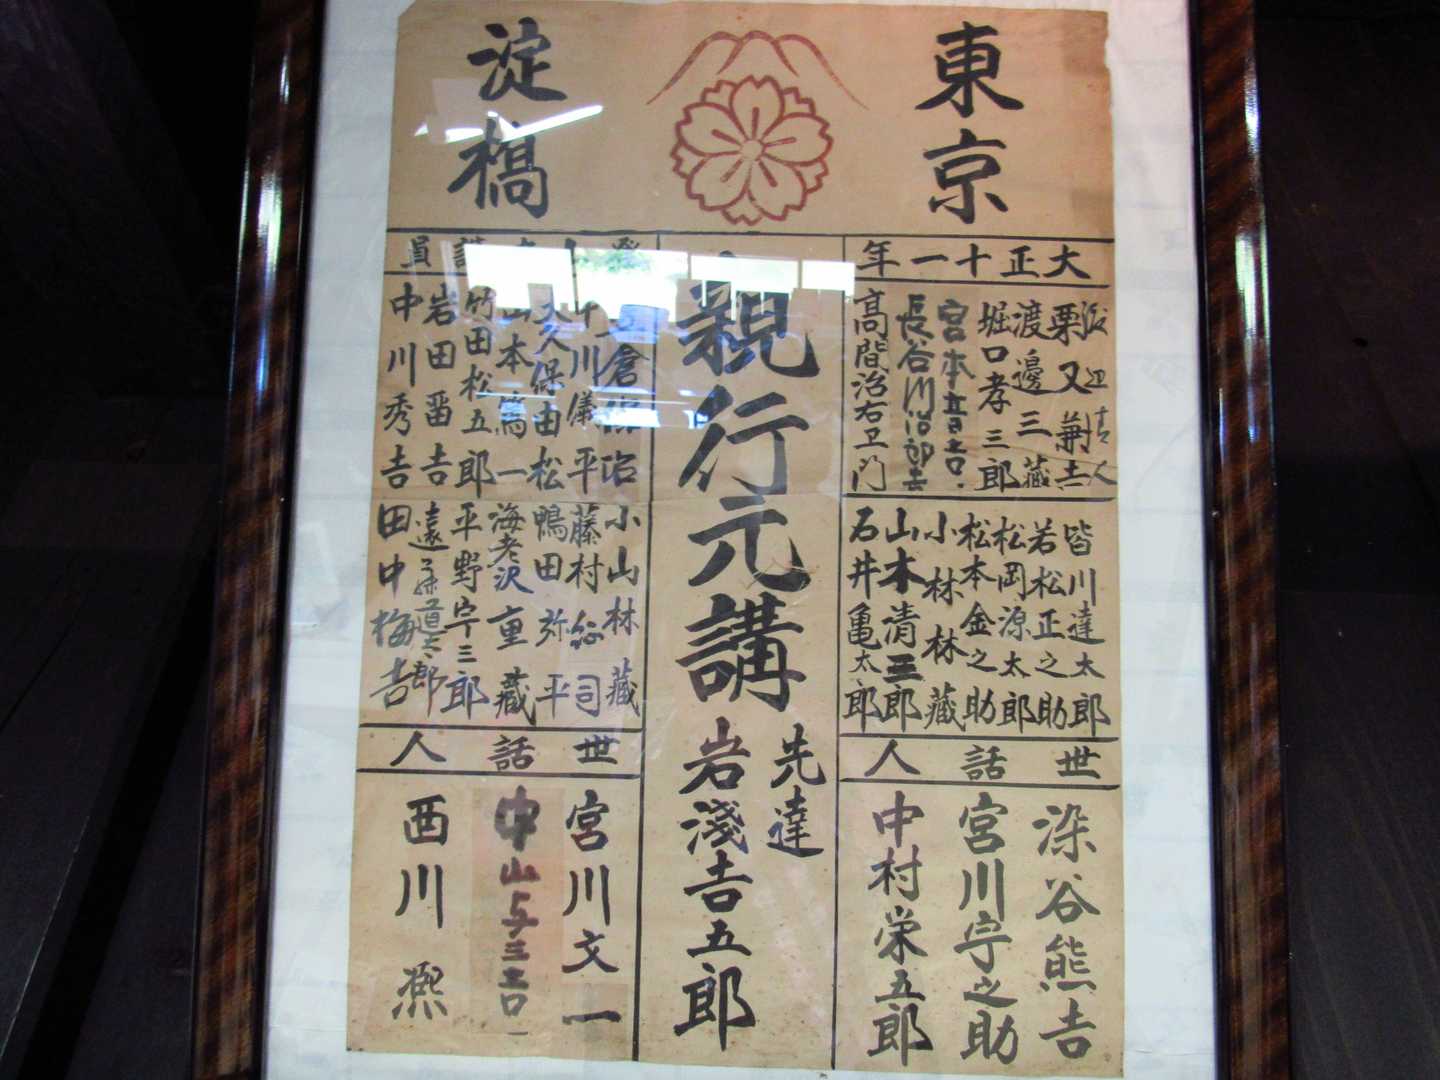 東京
淀橋
大正十一年
栗又兼吉
渡邊三蔵
堀口孝三郎
宮本音吉
長谷川治郎吉
高間治右卫门
皆川達太郎
若松正之助
松岡源太郎
松本金之助
小林林蔵
山本清三郎
石井亀太郎
世話人
染谷熊吉
宮川宇之助
中村栄五郎
親行元講
先達
岩淺吉五郎
員
倉
川儀平
大久保由松
山本篤一
竹田松五郎
岩田留吉
中川秀吉
小山林蔵
藤村
司
鴨田弥平
海老沢重蔵
平野宇三郎
遠
田中梅吉
世話人
宮川文一
中山与三吉
西川凞